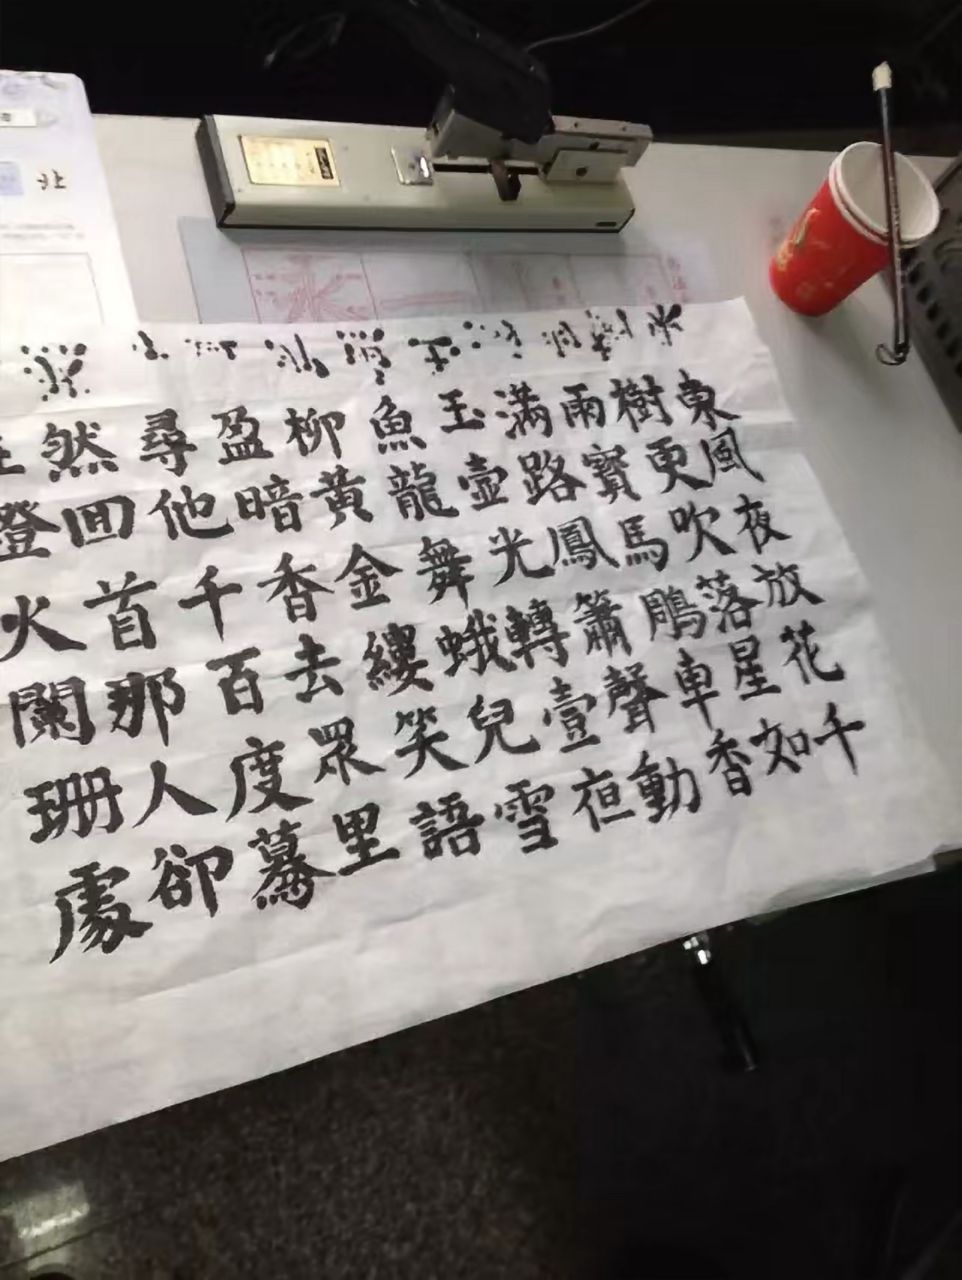 東風夜放花千
樹更吹落星如
雨寶馬鵰車香
满路鳳簫聲動
玉壷光轉壹亱
魚龍舞蛾兒雪
柳黄金縷笑語
盈暗香去眾里
尋他千百度驀
然囬首那人卻
在燈火闌珊處